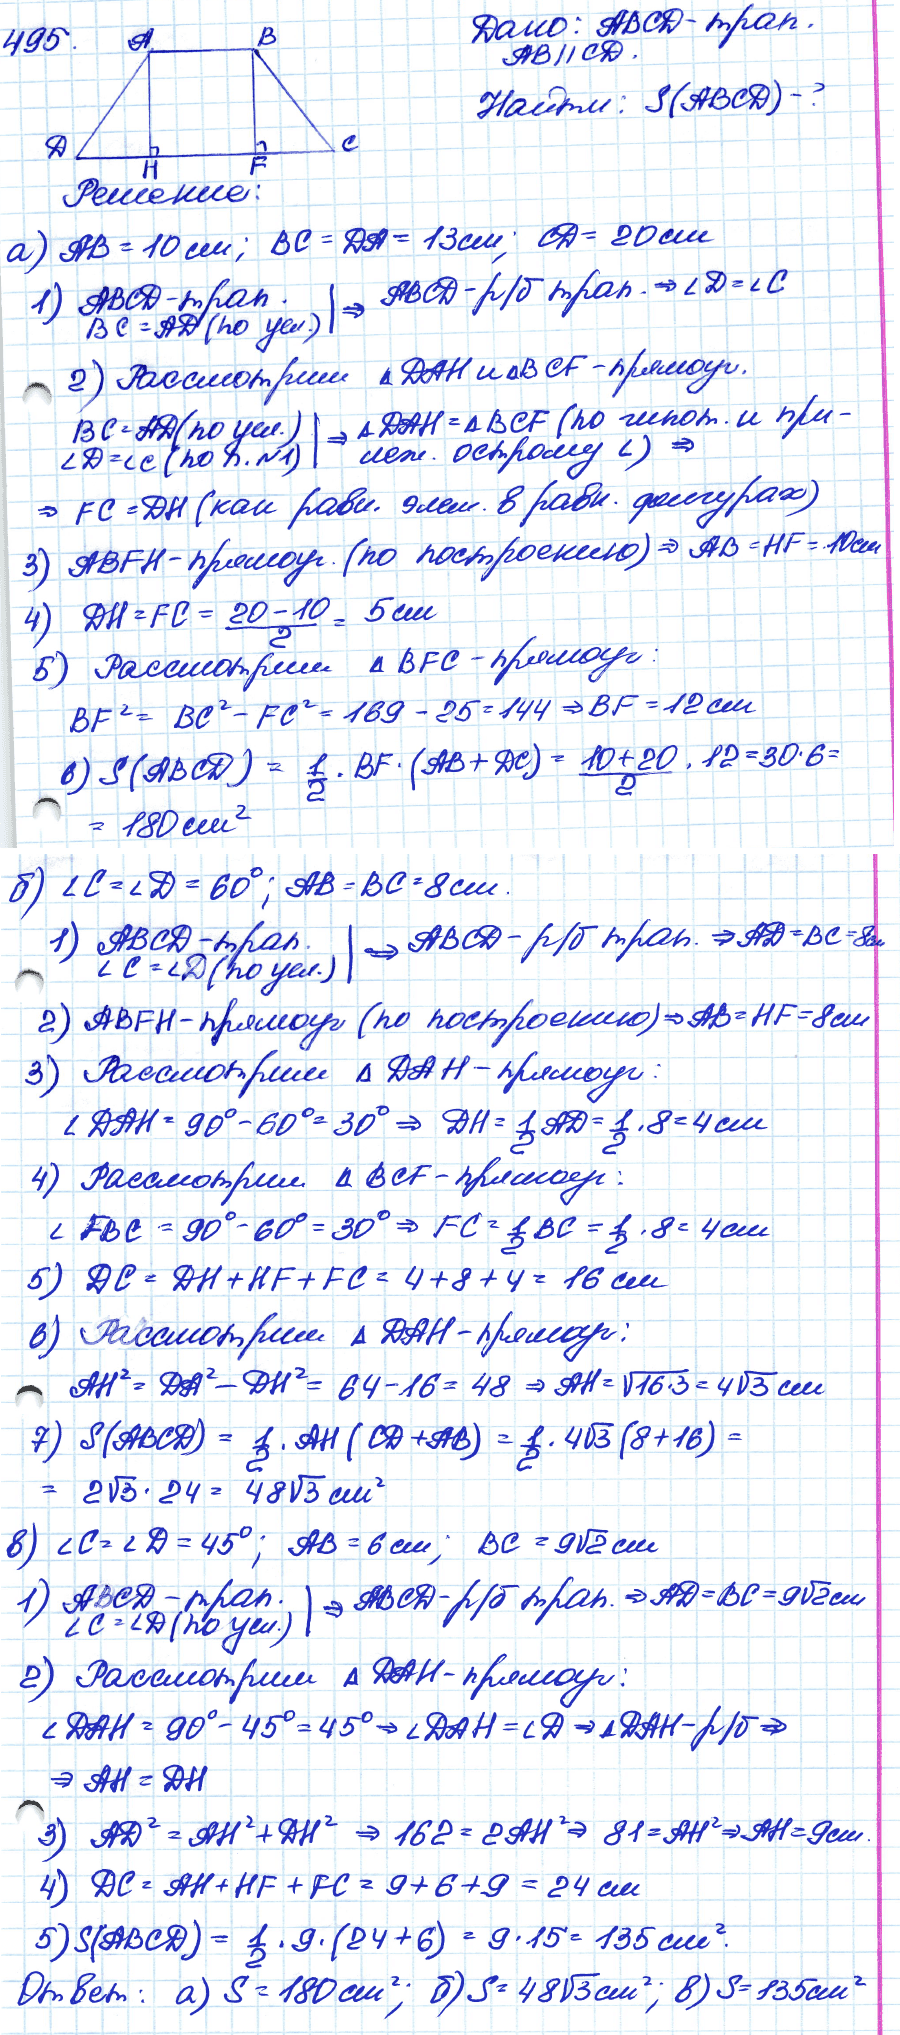 495.
A B
D H F C
Дано: ABCD-трап.
AB || CD.
Найти: S(ABCD) - ?
Решение:
а) AB = 10 см; BC = DA = 13 см; CD = 20 см
1) ABCD-трап. | ⇒ ABCD-р/б трап. ⇒ ∠D = ∠C
BC = AD (по усл.) |
2) Рассмотрим △DAH и △BCF - прямоуг.
BC = AD (по усл.) | ⇒ △DAH = △BCF (по гипот. и при-
∠D = ∠C (по п. №1) | леж. острому ∠) ⇒
⇒ FC = DH (как равн. элем. в равн. фигурах)
3) ABFH - прямоуг. (по построению) ⇒ AB = HF = 10 см
4) DH = FC = (20 - 10)/2 = 5 см
5) Рассмотрим △BFC - прямоуг:
BF² = BC² - FC² = 169 - 25 = 144 ⇒ BF = 12 см
6) S(ABCD) = 1/2 · BF · (AB + DC) = (10 + 20)/2 · 12 = 30 · 6 =
= 180 см²
б) ∠C = ∠D = 60°; AB = BC = 8 см.
1) ABCD-трап. | ⇒ ABCD - р/б трап. ⇒ AD = BC = 8 см
∠C = ∠D (по усл.) |
2) ABFH - прямоуг (по построению) ⇒ AB = HF = 8 см
3) Рассмотрим △DAH - прямоуг:
∠DAH = 90° - 60° = 30° ⇒ DH = 1/2 AD = 1/2 · 8 = 4 см
4) Рассмотрим △BCF - прямоуг:
∠FBC = 90° - 60° = 30° ⇒ FC = 1/2 BC = 1/2 · 8 = 4 см
5) DC = DH + HF + FC = 4 + 8 + 4 = 16 см
6) Рассмотрим △DAH - прямоуг:
AH² = DA² - DH² = 64 - 16 = 48 ⇒ AH = √16·3 = 4√3 см
7) S(ABCD) = 1/2 · AH (CD + AB) = 1/2 · 4√3 (8 + 16) =
= 2√3 · 24 = 48√3 см²
в) ∠C = ∠D = 45°; AB = 6 см; BC = 9√2 см
1) ABCD - трап. | ⇒ ABCD-р/б трап. ⇒ AD = BC = 9√2 см
∠C = ∠D (по усл.) |
2) Рассмотрим △DAH - прямоуг:
∠DAH = 90° - 45° = 45° ⇒ ∠DAH = ∠D ⇒ △DAH - р/б ⇒
⇒ AH = DH
3) AD² = AH² + DH² ⇒ 162 = 2AH² ⇒ 81 = AH² ⇒ AH = 9 см.
4) DC = AH + HF + FC = 9 + 6 + 9 = 24 см
5) S(ABCD) = 1/2 · 9 · (24 + 6) = 9 · 15 = 135 см².
Ответ: а) S = 180 см²; б) S = 48√3 см²; в) S = 135 см²